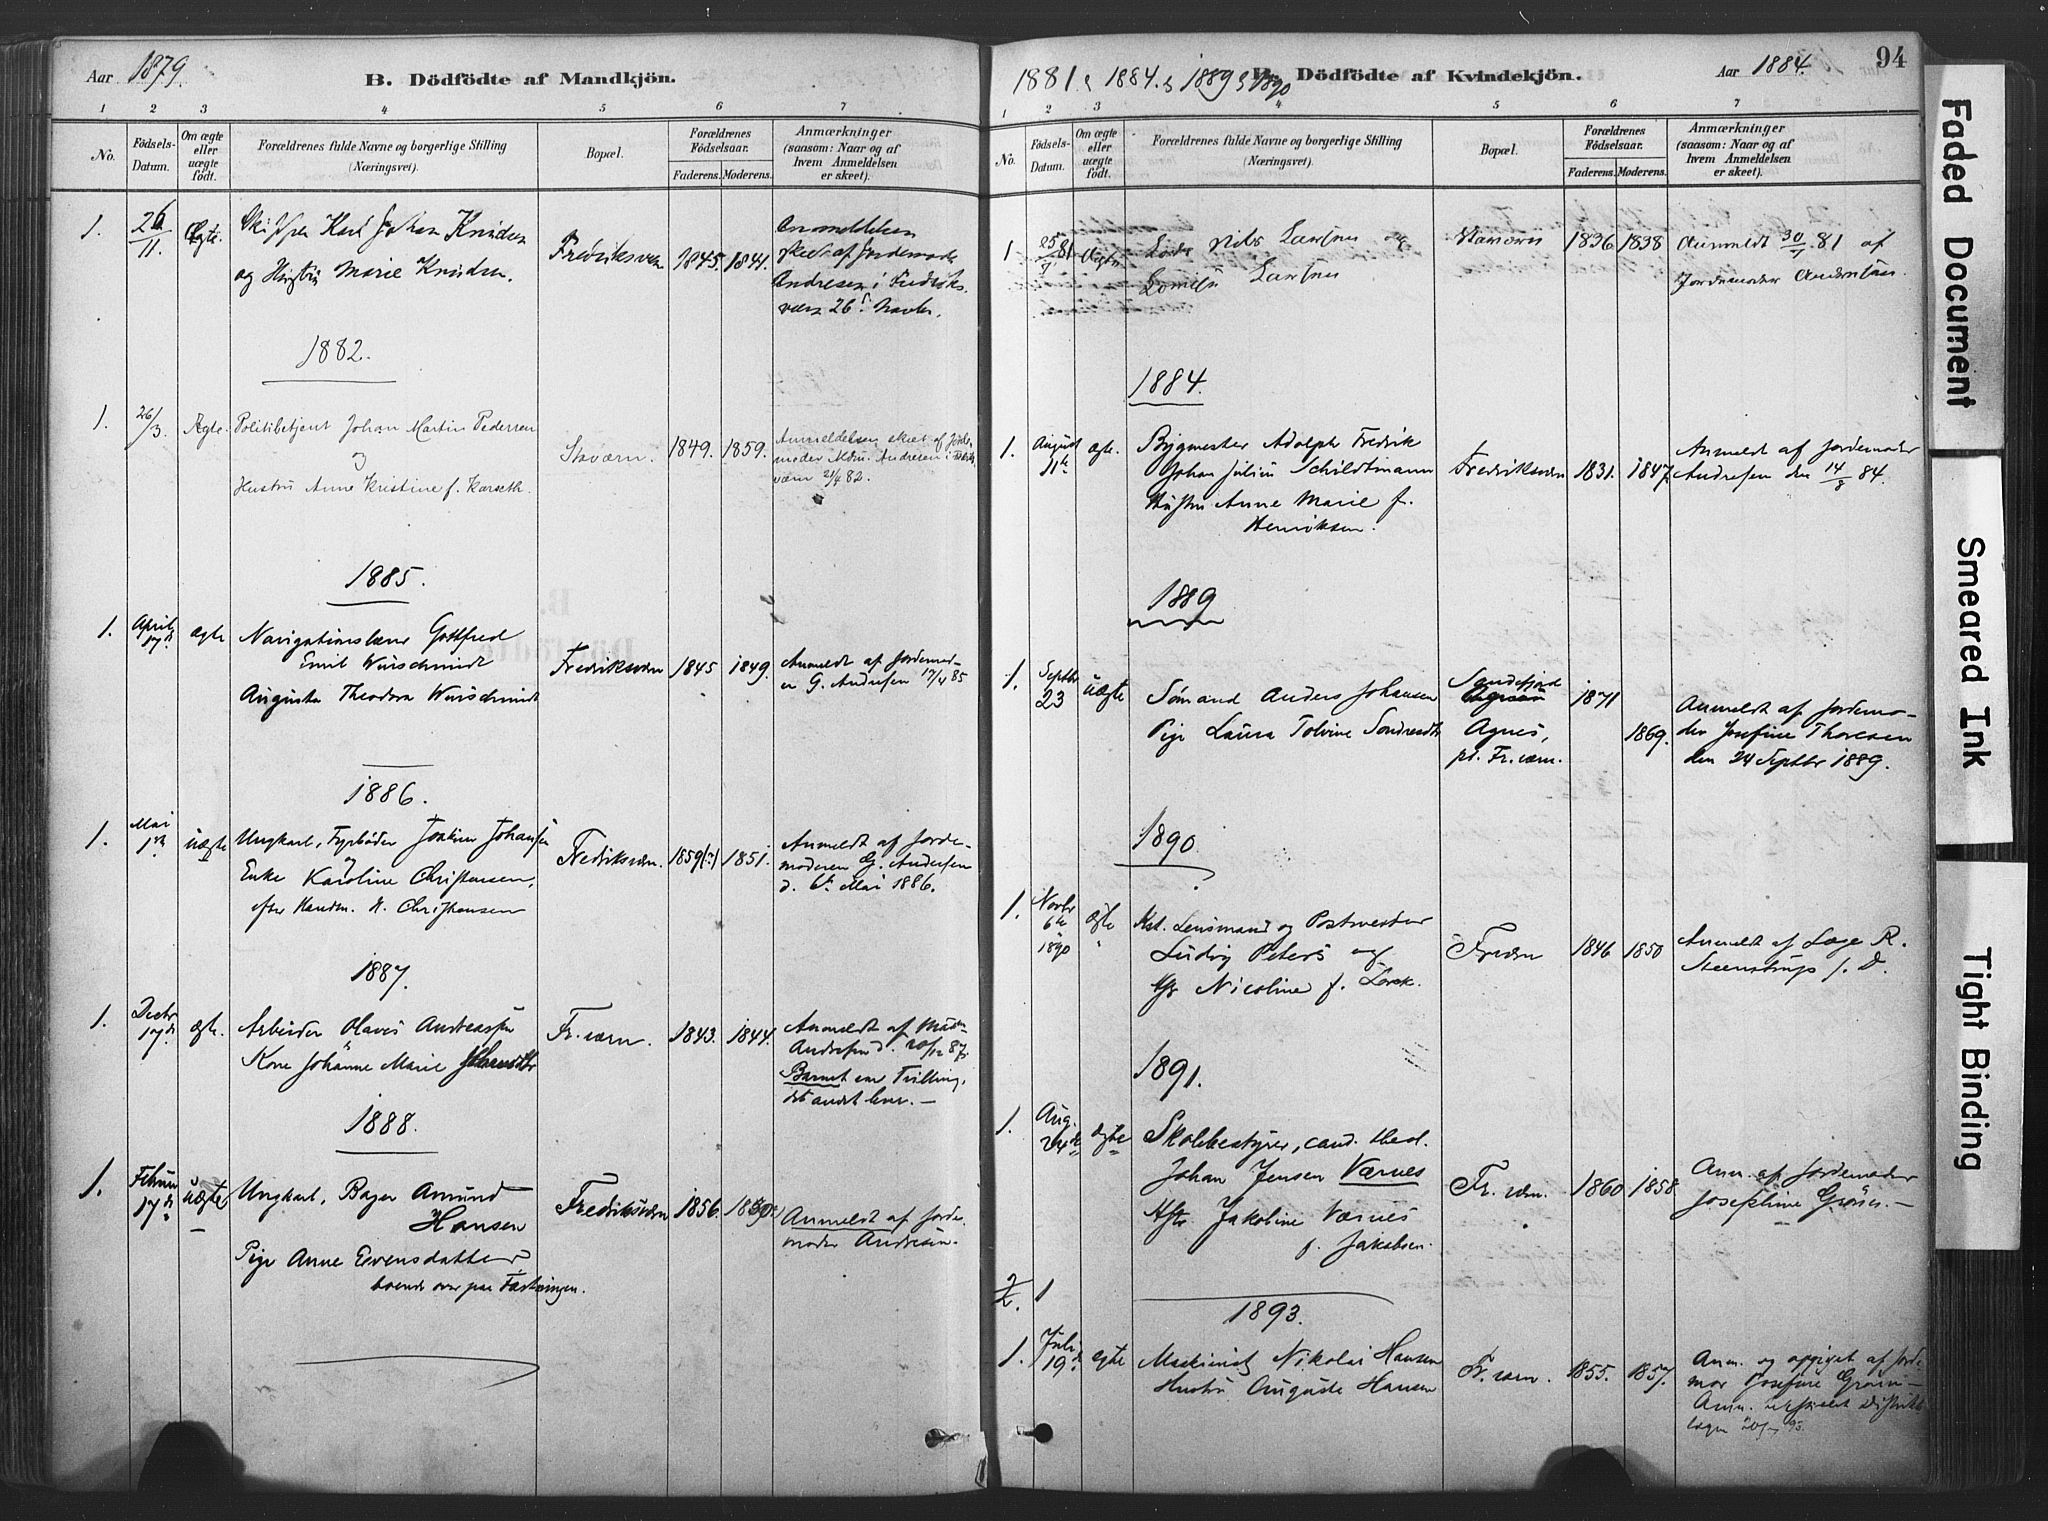 Aar 1879.
B. Dödfödte af Mandkjön.
1 2 3 4 5 6 7
No.
Födsels-
Datum.
Om ægte
eller
uægte
födt.
Forældrenes fulde Navne og borgerlige Stilling
(Næringsvei).
Bopæl.
Forældrenes
Födselsaar.
Faderens. Moderens.
Anmærkninger
(saasom: Naar og af
hvem Anmeldelsen
er skeet).
1. 26/11. Ægte. Karl Johan Knudsen
og Hustru Marie Knudsen.
Fredriksværn 1845. 1841.
Anmeldelsen
skeet af Jordemoder
Andresen i Fredriks-
værn 26. Novbr.
1882.
1. 26/3. Ægte. Politibetjent Johan Martin Pedersen
og
Hustru Anne Kristine f. Karseth.
Staværn. 1849. 1859.
Anmeldelsen skeet af Jorde-
moder Mdm. Andresen i Fredriks-
værn 2/4 82.
1885.
1. April 17d. ægte Navigationslærer Gottfred
Emil Wurschmidt
Augusta Theodora Wurschmidt
Fredriksværn 1845 1849.
Anmeldt af Jordemod-
er G. Andresen 17/4 85
1886.
1. Mai 1st uægte Ungkarl, Fyrbøder Joakim Johansen
og
Enke Karoline Christensen,
efter H. Christensen
Fredriksværn. 1859(?) 1851.
Anmeldt af Jorde-
moderen G. Andersen
d. 6. Mai 1886.
1887.
1. Decbr 17d. ægte. Arbeider Olaves Andreassen
Kone Johanne Marie
Fr.værn. 1843. 1844.
Anmeldt af Mdm.
Andresen d. 20/12 87.
Barnet en Tvilling,
det andet lever. —
1888.
1. Februar 17d. uægte Ungkarl, Bager Amund
Hansen
Pige Anne Evensdatter,
boende over paa Fæstningen.
Fredriksværn 1856.
Anmeldt af Jorde-
moder Andresen.
1881, 1884. & 1889 & 1890
B. Dödfödte af Kvindekjön.
Aar 1884.
94
1 2 3 4 5 6 7
No.
Födsels-
Datum.
Om ægte
eller
uægte
födt.
Forældrenes fulde Navne og borgerlige Stilling
(Næringsvei).
Bopæl.
Forældrenes
Födselsaar.
Faderens. Moderens.
Anmærkninger
(saasom: Naar og af
hvem Anmeldelsen
er skeet).
1 25/7 81 Ægte Lods Nils Larsen og
Larsen
Staværn 1836 1838
Anmeldt 30/7 81 af
Jordemoder Andersen.
1884.
1. August 11te ægte. Bygmester Adolph Fredrik
Johan Julius Schildtmann
Hustru Anne Marie f.
Henriksen.
Fredriksværn 1831. 1847.
Anmeldt af Jordemoder
Andresen den 14/8 84.
1889
1. Septbr 23 uægte Sømand Anders Johansen
Pige Laura Tolvine
Sandefjord
Agnes,
pt. Fr.værn.
1871
1869.
Anmeldt af Jordemo-
der Josefine Thoresen
den 24 Septbr 1889.
1890
1. Novbr 6te 1890 ægte Kst. Lensmand og Postmester
Ludvig Peters og
Hr Nicoline f. Lorck.
Fr.værn 1846 1850
Anmeldt af Læge R.
Steenstrup s. D.
1891.
1. Aug. 24de ægte Skolebestyrer, cand. theol.
Johan Jensen Værnes
Hstr Jakobine Værnes
f. Jakobsen.
Fr. værn. 1860 1858
Anm. af Jordemoder
Josephine Grøner. —
1893.
1. Juli 19d. ægte Maskinist Nikolai Hansen
Hustru Auguste Hansen
Fr. værn. 1855. 1857.
Anm. og opgivet af Jorde-
mor Josefine
Faded Document
Smeared Ink
Tight Binding